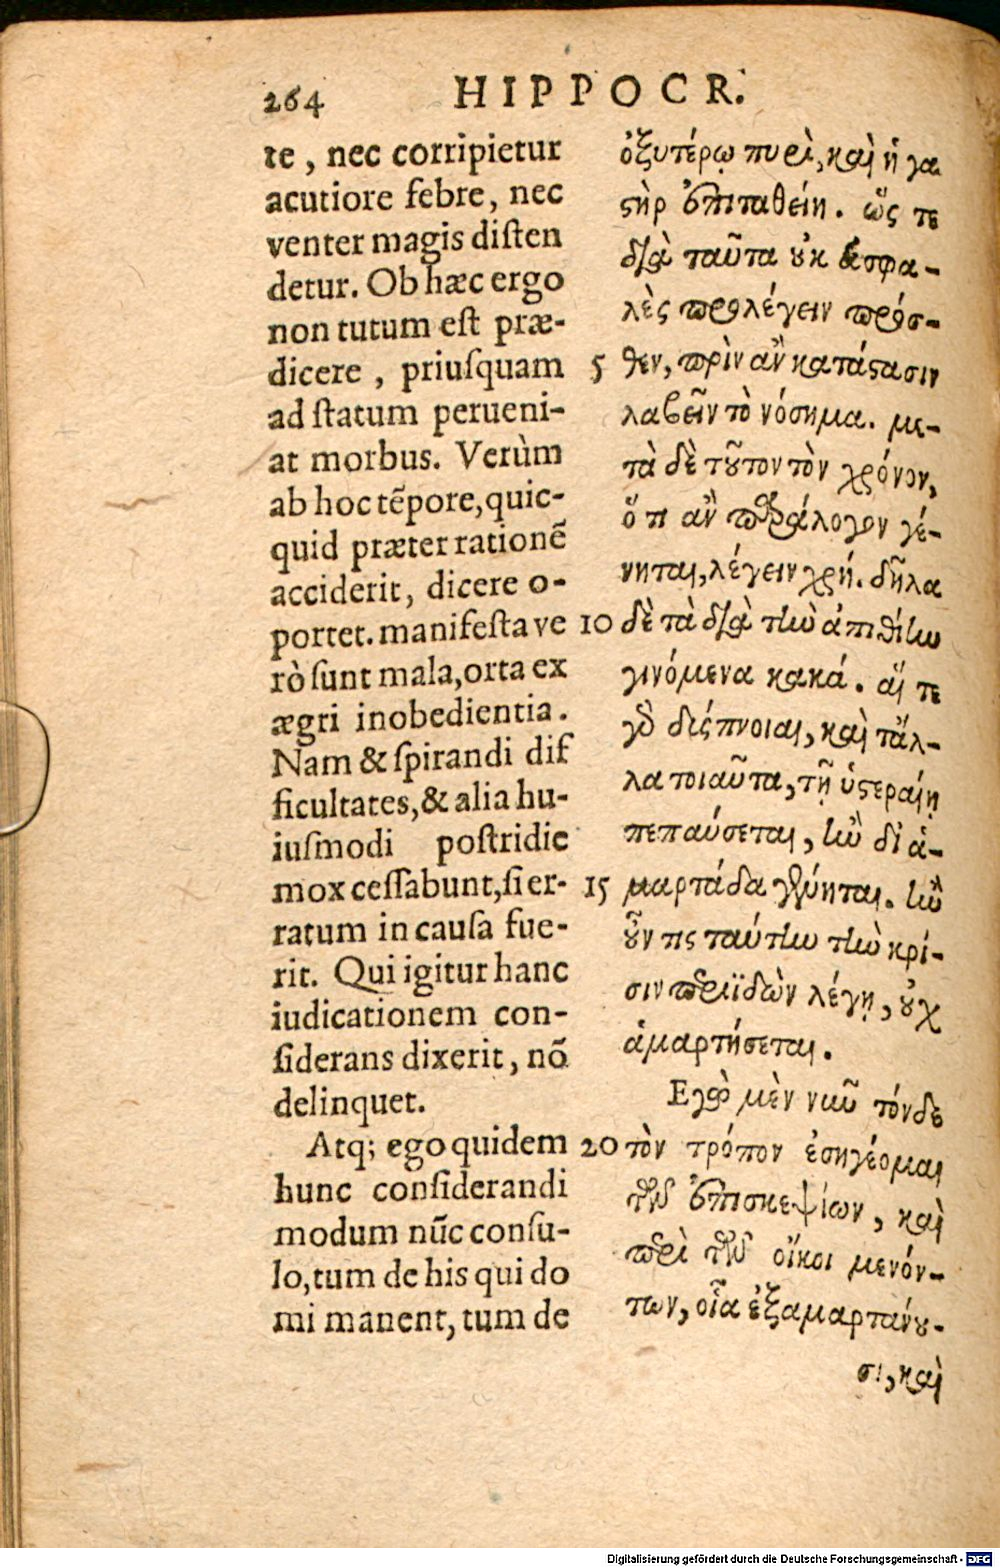 264 HIPPOCR.
te, nec corripietur
acutiore febre, nec
venter magis disten
detur. Ob hæc ergo
non tutum est præ-
dicere, priusquam
ad statum perueni-
at morbus. Verùm
ab hoc tēpore, quic-
quid præter rationē
acciderit, dicere o-
portet. manifesta ve
rò sunt mala, orta ex
ægri inobedientia.
Nam & spirandi dif
ficultates, & alia hu-
iusmodi postridie
mox cessabunt, si er-
ratum in causa fue-
rit. Qui igitur hanc
iudicationem con-
siderans dixerit, nō
delinquet.
Atq; ego quidem
hunc considerandi
modum nūc consu-
lo, tum de his qui do
mi manent, tum de
ὀξυτέρῳ πυρὶ, καὶ ἡ γα
ςὴρ ἐπιταθείη. ὥς τε
διὰ ταῦτα οὐκ ἀσφα-
λὲς προλέγειν πρόσ-
5 θεν, πρὶν ἂν κατάςασιν
λαβεῖν τὸ νόσημα. με-
τὰ δὲ τοῦτον τὸν χρόνον,
ὅ τι ἂν παράλογον γέ-
νηται, λέγειν χρή. δῆλα
10 δὲ τὰ διὰ τὴν ἀπιθίην
γινόμενα κακά. αἵ τε
γὰρ δύςπνοιαι, καὶ τἄλ-
λα τοιαῦτα, τῇ ὑςεραίῃ
πεπαύσεται, ἢν δι ἁ-
15 μαρτάδα γένηται. ἢν
οὖν τις ταύτην τὴν κρί-
σιν προϊδὼν λέγῃ, οὐχ
ἁμαρτήσεται.
Εγὼ μὲν νῦν τόνδε
20 τὸν τρόπον ἐσηγέομαι
τῶν ἐπισκεψίων, καὶ
περὶ τῶν οἴκοι μενόν-
των, οἷα ἐξαμαρτάνου-
σι, καὶ
Digitalisierung gefördert durch die Deutsche Forschungsgemeinschaft - DFG